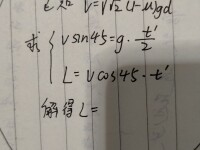 v=√2(1-μ)gd
求 { v sin45 = g·t'/2
L = v cos45·t'
解得 L =